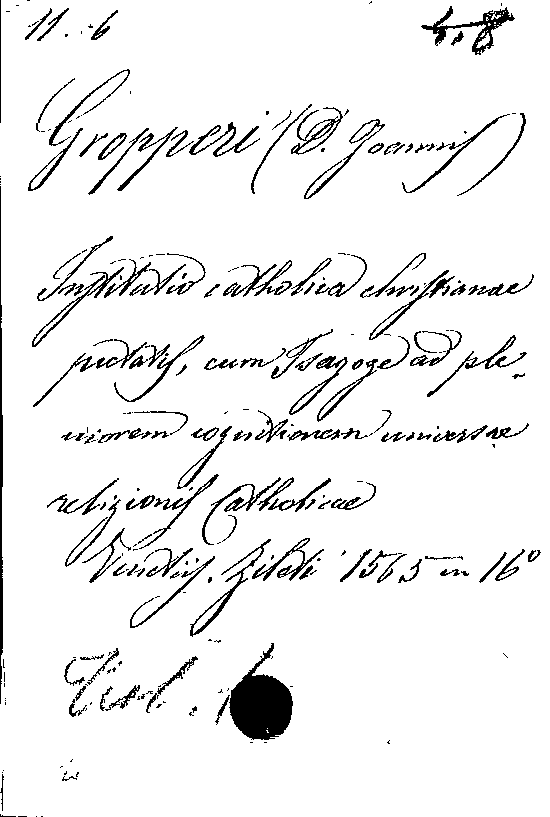 11. 6
Gropperi (D. Joannis)
Institutio catholica christianae
pietatis, cum Isagoge ad ple-
niorem cognitionem universae
religionis Catholicae
Venetiis. Zileti 1565 in 16º